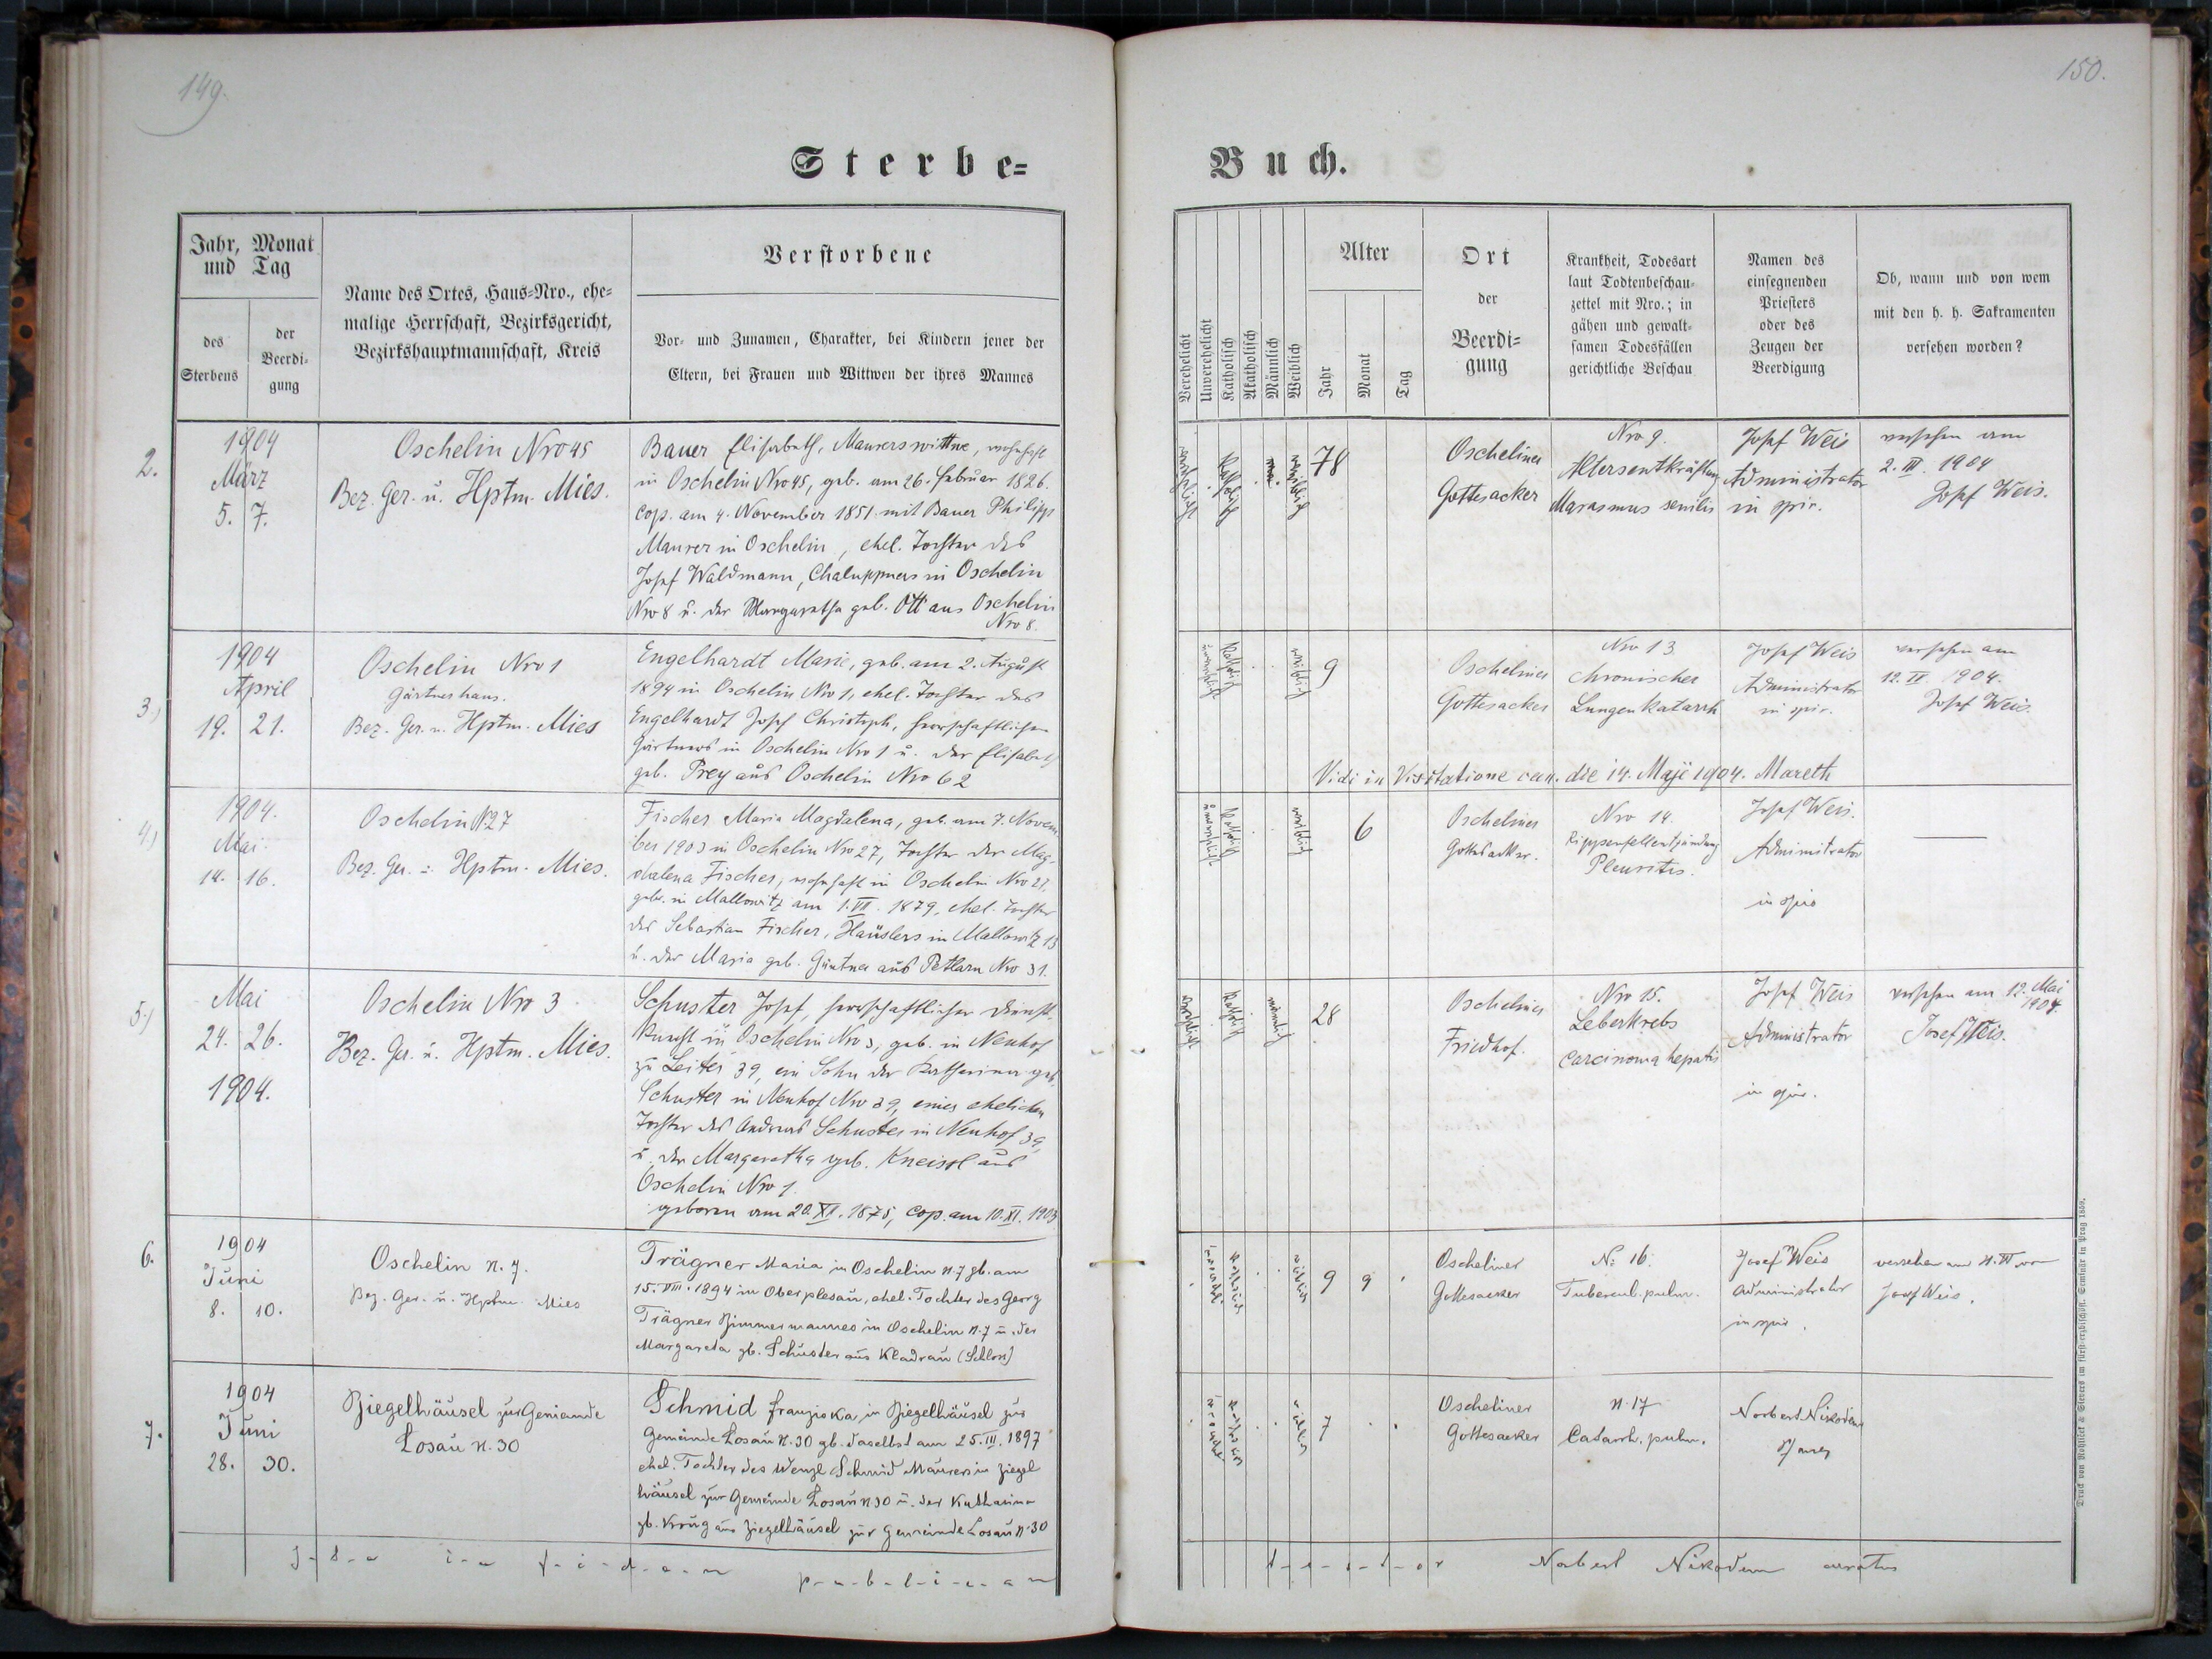 149.
150.
Sterbe=
Buch.
Jahr, Monat
und Tag
des
Sterbens
der
Beerdi-
gung
Name des Ortes, Haus-Nro., ehe-
malige Herrschaft, Bezirksgericht,
Bezirkshauptmannschaft, Kreis
Verstorbene
Vor- und Zunamen, Charakter, bei Kindern jener der
Eltern, bei Frauen und Wittwen der ihres Mannes
Verehelicht
Unverehelicht
Katholisch
Akatholisch
Männlich
Weiblich
Alter
Jahr
Monat
Tag
Ort
der
Beerdi=
gung
Krankheit, Todesart
laut Todtenbeschau-
zettel mit Nro.; in
gähen und gewalt-
samen Todesfällen
gerichtliche Beschau
Namen des
einsegnenden
Priesters
oder des
Zeugen der
Beerdigung
Ob, wann und von wem
mit den h. h. Sakramenten
versehen worden?
2.
1904
März
5. 7.
Oschelin Nro 45
Bez. Ger. u. Hptm. Mies.
Bauer Elisabeth, Maurerswittwe, wohnhaft
in Oschelin Nro 45, geb. am 26. Februar 1826.
Cop. am 4. November 1851 mit Bauer Philipp
Maurer in Oschelin, ehel. Tochter des
Josef Waldmann, Chaluppners in Oschelin
Nro 8 u. der Margaretha geb. Ott aus Oschelin
Nro 8.
katholisch
weiblich
78
Oscheliner
Gottesacker
Nro 9.
Altersentkräftung
Marasmus senilis
Josef Weis
Administrator
in spir.
versehen am
2. III. 1904
Josef Weis.
3.)
1904
April
19. 21.
Oschelin Nro 1
Gärtnerhaus.
Bez. Ger. u. Hptm. Mies
Engelhardt Marie, geb. am 2. August
1894 in Oschelin Nro 1, ehel. Tochter des
Engelhardt Josef Christoph, herrschaftlichen
Gärtners in Oschelin Nro 1 u. der Elisabeth
geb. Prey aus Oschelin Nro 62
katholisch
weiblich
9
Oscheliner
Gottesacker
Nro 13
chronischer
Lungenkatarrh
Josef Weis
Administrator
in spir.
versehen am
12. IV. 1904.
Josef Weis.
Vidi in Visitatione can. die 14. Maji 1904. Mareth
4.)
1904.
Mai
14. 16.
Oschelin N. 27
Bez. Ger. u. Hptm. Mies.
Fischer Maria Magdalena, geb. am 7. Novem
ber 1903 in Oschelin Nro 27, Tochter der Mag-
dalena Fischer, wohnhaft in Oschelin Nro 27,
geb. in Mallowitz am 1. VII. 1879, ehel. Tochter
des Sebastian Fischer, Häuslers in Mallowitz 13
u. der Maria geb. Güntner aus Petlarn Nro 31.
katholisch
weiblich
6
Oscheliner
Gottesacker.
Nro 14.
Rippenfellentzündung
Pleuritis.
Josef Weis.
Administrator
in spir.
5.)
Mai
24. 26.
1904.
Oschelin Nro 3
Bez. Ger. u. Hptm. Mies.
Schuster Josef, herrschaftlicher Dienst-
knecht in Oschelin Nro 3, geb. in Neuhof
zu Leiter 39, ein Sohn der Katharina geb.
Schuster in Neuhof Nro 39, einer ehelichen
Tochter des Andreas Schuster in Neuhof 39,
u. der Margaretha geb. Kneissl aus
Oschelin Nro 1.
geboren am 20. XII. 1875, Cop. am 10. XI. 1903
verehelicht
katholisch
männlich
28
Oscheliner
Friedhof.
Nro 15.
Leberkrebs
Carcinoma hepatis
Josef Weis
Administrator
in spir.
versehen am 12. Mai
1904.
Josef Weis.
6.
1904
Juni
8. 10.
Oschelin n. 7.
Bez. Ger. u. Hptm. Mies
Trägner Maria in Oschelin n. 7 gb. am
15. VIII. 1894 in Oberplesau, ehel. Tochter des Georg
Trägner Zimmermannes in Oschelin n. 7 u. der
Margareta gb. Schuster aus Kladrau (Schloss)
9 9
Oscheliner
Gottesacker
N: 16.
Tubercul. pulm.
Josef Weis
administrator
in spir.
Josef Weis.
7.
1904
Juni
28. 30.
Ziegelhäusel zur Gemeinde
Losau n. 30
Schmid Franziska, in Ziegelhäusel zur
Gemeinde Losau N. 30 gb. daselbst am 25. III. 1897
ehel. Tochter des Wenzl Schmid Maurers in Ziegel
häusel zur Gemeinde Losau n 30 u. der Katharina
gb. Krug aus Ziegelhäusel zur Gemeinde Losau n. 30
7
Oscheliner
Gottesacker
n. 17
Catarrh. pulm.
Norbert Nikodem
i-n f-i-d-e-m p-u-b-l-i-c-a-m
t-e-s-t-o-r Norbert Nikodem curatus
Druck von Rohliček & Sievers im fürst-erzbischöfl. Seminär in Prag 1859.